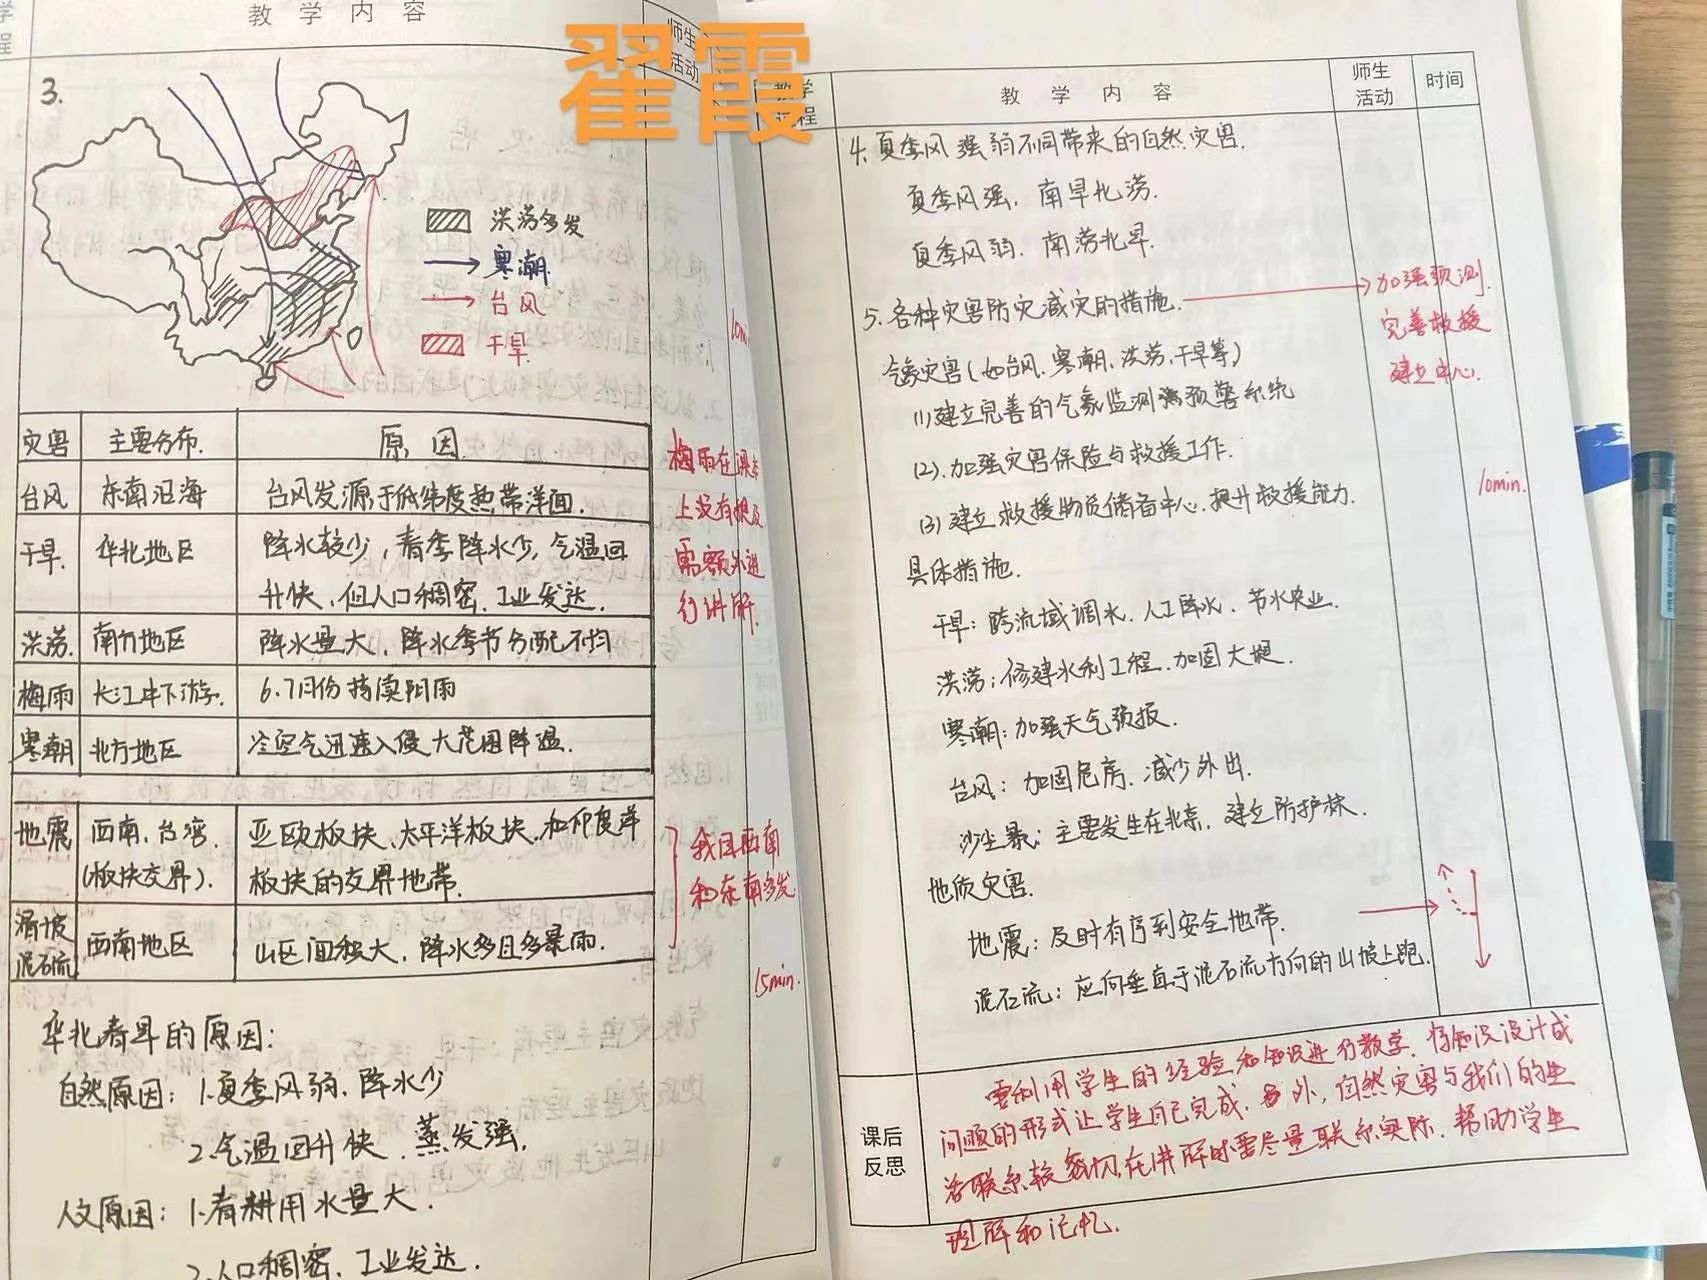 翟霞
教 学 内 容
师生
活动
3.
洪涝多发
寒潮
台风
干旱
10min
灾害 主要分布. 原 因
台风 东南沿海 台风发源于低纬度热带洋面.
干旱. 华北地区 降水较少，春季降水少，气温回
升快、但人口稠密、工业发达.
洪涝. 南方地区 降水量大、降水季节分配不均
梅雨 长江中下游. 6.7月份持续阴雨
寒潮 北方地区 冷空气迅速入侵大范围降温.
梅雨在课本
上没有提及
需额外进
行讲解.
地震 西南、台湾 亚欧板块、太平洋板块、和印度洋
(板块交界). 板块的交界地带.
滑坡
泥石流 西南地区 山区面积大、降水多且多暴雨.
我国西南
和东南多发
15min.
华北春旱的原因:
自然原因: 1.夏季风弱、降水少
2.气温回升快、蒸发强.
人文原因: 1.春耕用水量大.
2.人口稠密、工业发达.
教 学 内 容
师生
活动
时间
4.夏季风强弱不同带来的自然灾害.
夏季风强、南旱北涝.
夏季风弱、南涝北旱.
5.各种灾害防灾减灾的措施.
加强预测.
完善救援
建立中心.
气象灾害(如台风、寒潮、洪涝、干旱等)
(1)建立完善的气象监测预警系统
(2).加强灾害保险与救援工作.
(3)建立救援物质储备中心、提升救援能力.
10min.
具体措施.
干旱: 跨流域调水、人工降水、节水农业.
洪涝: 修建水利工程、加固大堤.
寒潮: 加强天气预报.
台风: 加固危房、减少外出.
沙尘暴: 主要发生在北京，建立防护林.
地质灾害.
地震: 及时有序到安全地带.
泥石流: 应向垂直于泥石流方向的山坡上跑.
课后
反思
要利用学生的经验和知识进行教学. 将知识设计成
问题的形式让学生自己完成. 另外，自然灾害与我们的生
活联系较密切,在讲解时要尽量联系实际. 帮助学生
理解和记忆.